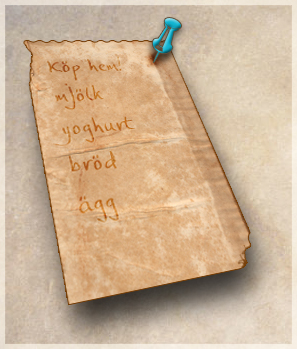 Köp hem!
mjölk
yoghurt
bröd
ägg